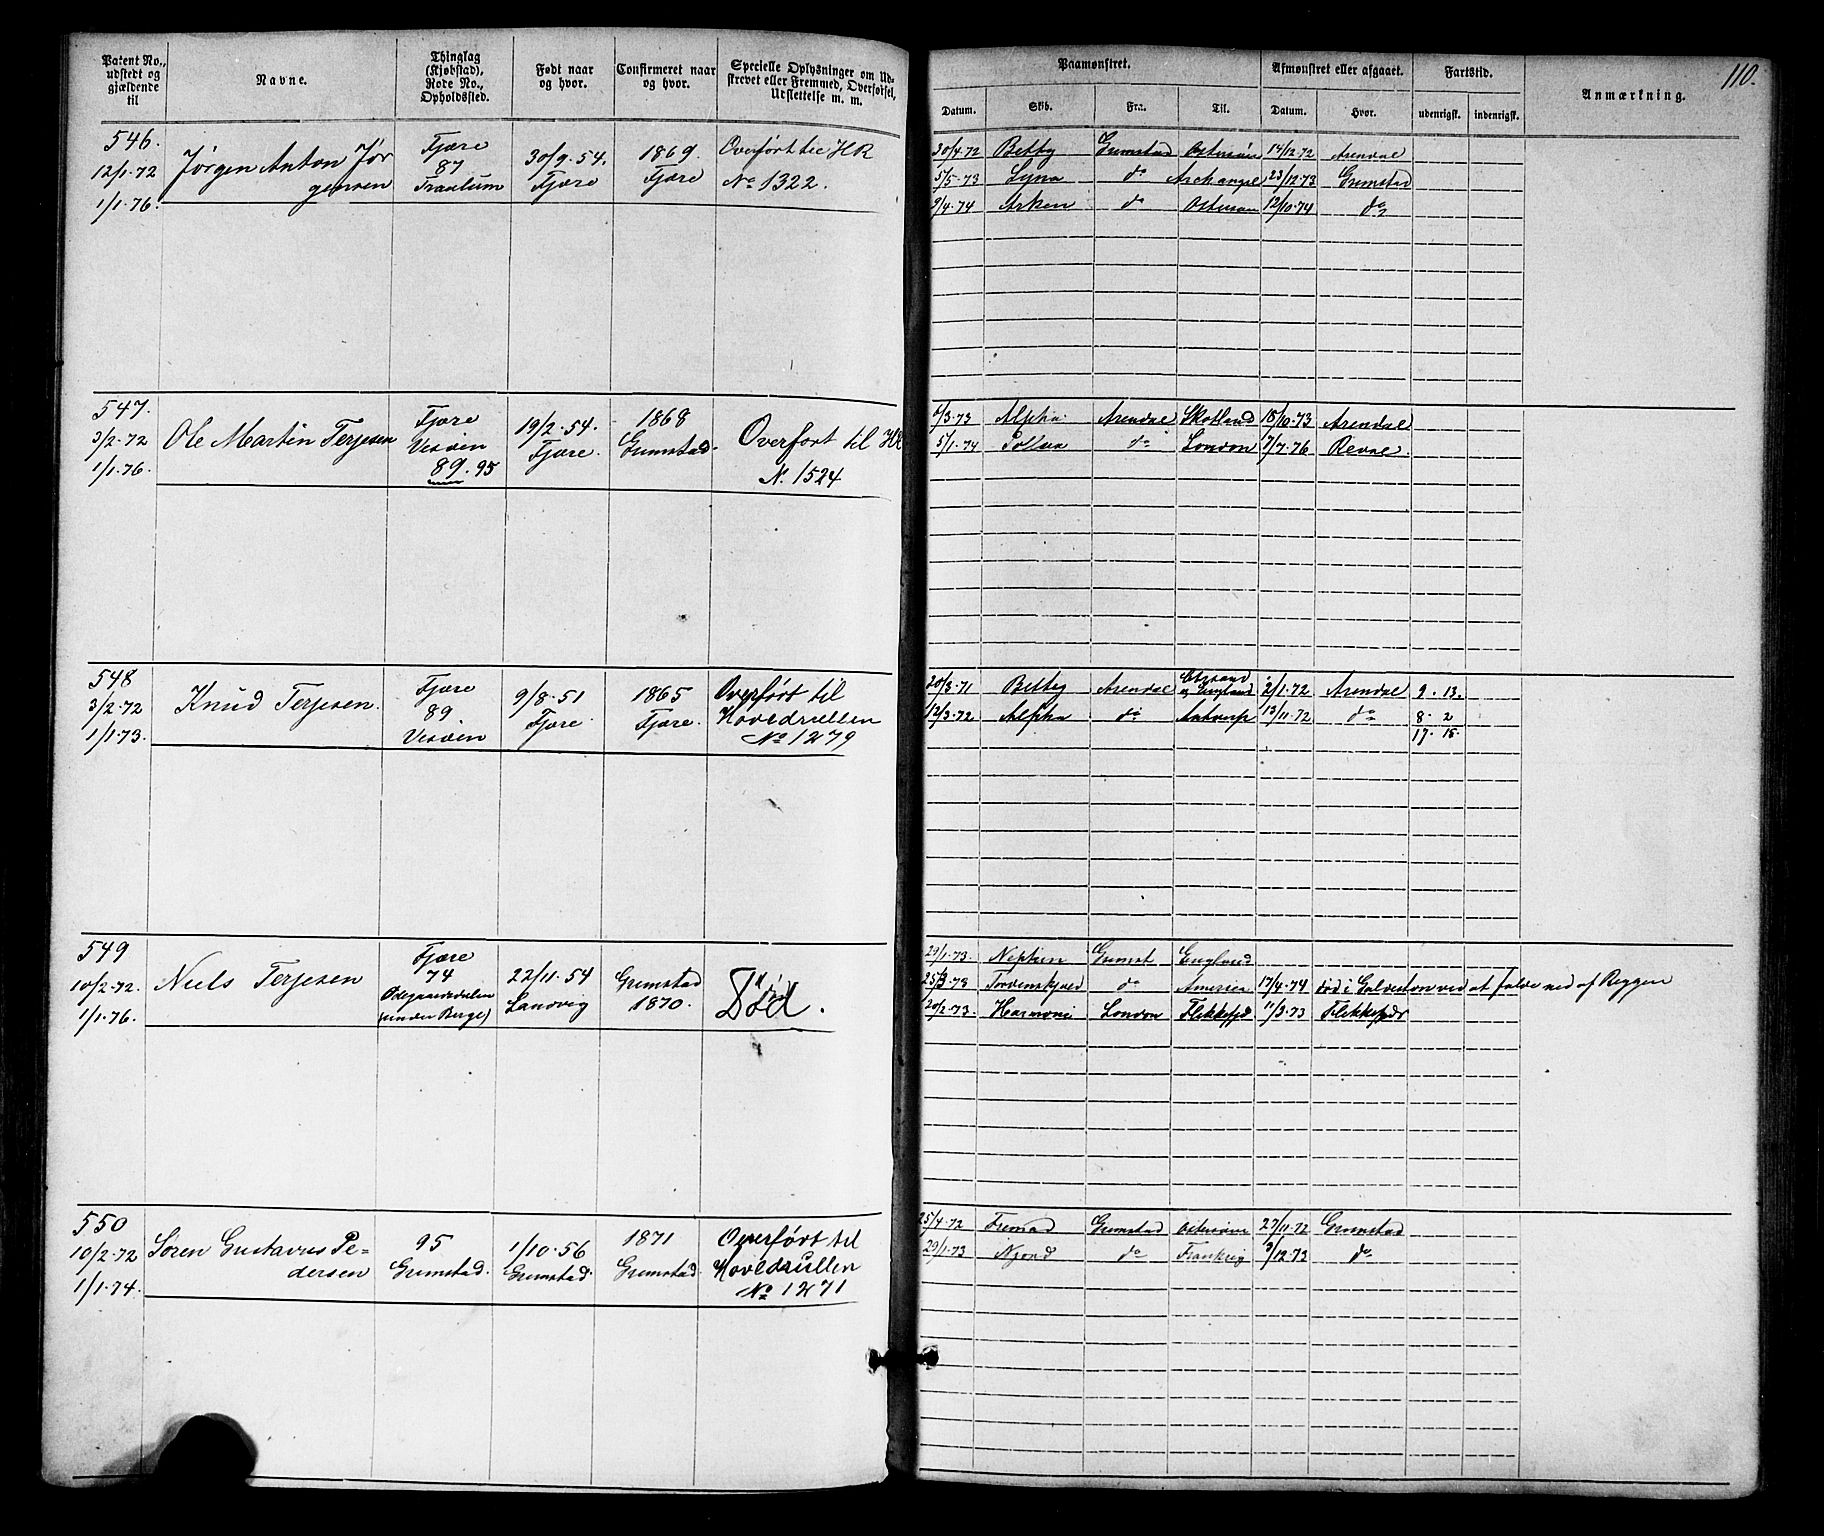 Patent No., udstedt og gjældende til
Navne.
Thinglag (Kjøbstad), Rode No., Opholdssted.
Født naar og hvor.
Confirmeret naar og hvor.
Specielle Oplysninger om Udskrevet eller Fremmed, Overførsel, Udslettelse m. m.
Paamønstret.
Afmønstret eller afgaaet.
Fartstid.
Anmærkning.
110.
Datum. Skib. Fra. Til. Datum. Hvor. udenrigsk. indenrigsk.
546.
12/1.72
1/1.76.
Jørgen Anton Jør
gensen
Fjære
87
30/9.54.
Fjære
1869.
Fjære
Overført til HR
No 1322.
30/4.72 Betty Grimstad 14/12.72 Arendal
5/5.73 do Archangel 23/12.73 Grimstad
9/4.74 do 12/10.74 do
547.
3/2.72
1/1.76.
Ole Martin Terjesen
Fjære
89. 95
19/2.54.
Fjære.
1868
Grimstad.
Overført til HR
N. 1524
6/3.73 Alpha Arendal Skotland 18/10.73 Arendal
5/1.74 do London 7/7.76
548
3/2.72
1/1.73.
Knud Terjesen.
Fjære
89.
9/8.51
Fjære.
1865
Fjære.
Overført til
Hovedrullen
No 1279
20/3.71 Betty Arendal England 2/1.72 Arendal 9. 13.
12/3.72 Alpha do Antverp 13/11.72 do 8. 2
17. 15.
549
10/2.72.
1/1.76.
Niels Terjesen
Fjære
74
(under Berge)
22/11.54
Landvig
Grimstad
1870.
Død.
29/1.73 Neptun Grimst England
do 17/4.74 død i Galveston ved at falde ned af Riggen
20/2.73. London Flekkefj 11/3.73 Flekkefjor
550
10/2.72
1/1.74.
Søren Gustavus Pe=
dersen
95
Grimstad.
1/10.56
Grimstad.
1871
Grimstad.
Overført til
Hovedrullen
No 1271
25/4.72 Grimstad 27/11.72 Grimstad
29/1.73 do Frankrig 9/12.73 do